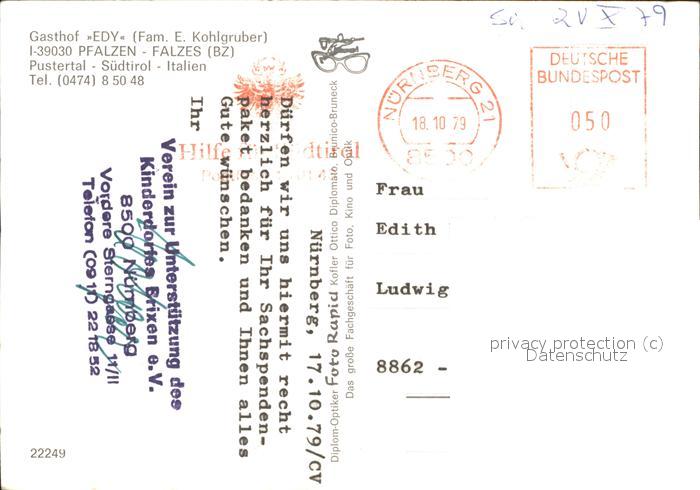 Gasthof »EDY« (Fam. E. Kohlgruber)
I-39030 PFALZEN - FALZES (BZ)
Pustertal - Südtirol - Italien
Tel. (0474) 8 50 48
79
NÜRNBERG 21
18.10 79
DEUTSCHE
BUNDESPOST
050
Hilfe Südtirol
Frau
Edith
Ludwig
8862 -
privacy protection (c)
Datenschutz
Nürnberg, 17.10.79/CV
Dürfen wir uns hiermit recht
herzlich für Ihr Sachspenden-
paket bedanken und Ihnen alles
Gute wünschen.
Ihr
Verein zur Unterstützung des
Kinderdorfes Brixen e.V.
8500 Nürnberg
Vordere Sterngasse 11/II
Telefon (0911) 22 18 52
Diplom-Optiker Foto Rapid Kofler Ottico Diplomato, Brunico-Bruneck
Das große Fachgeschäft für Foto, Kino und Optik
22249